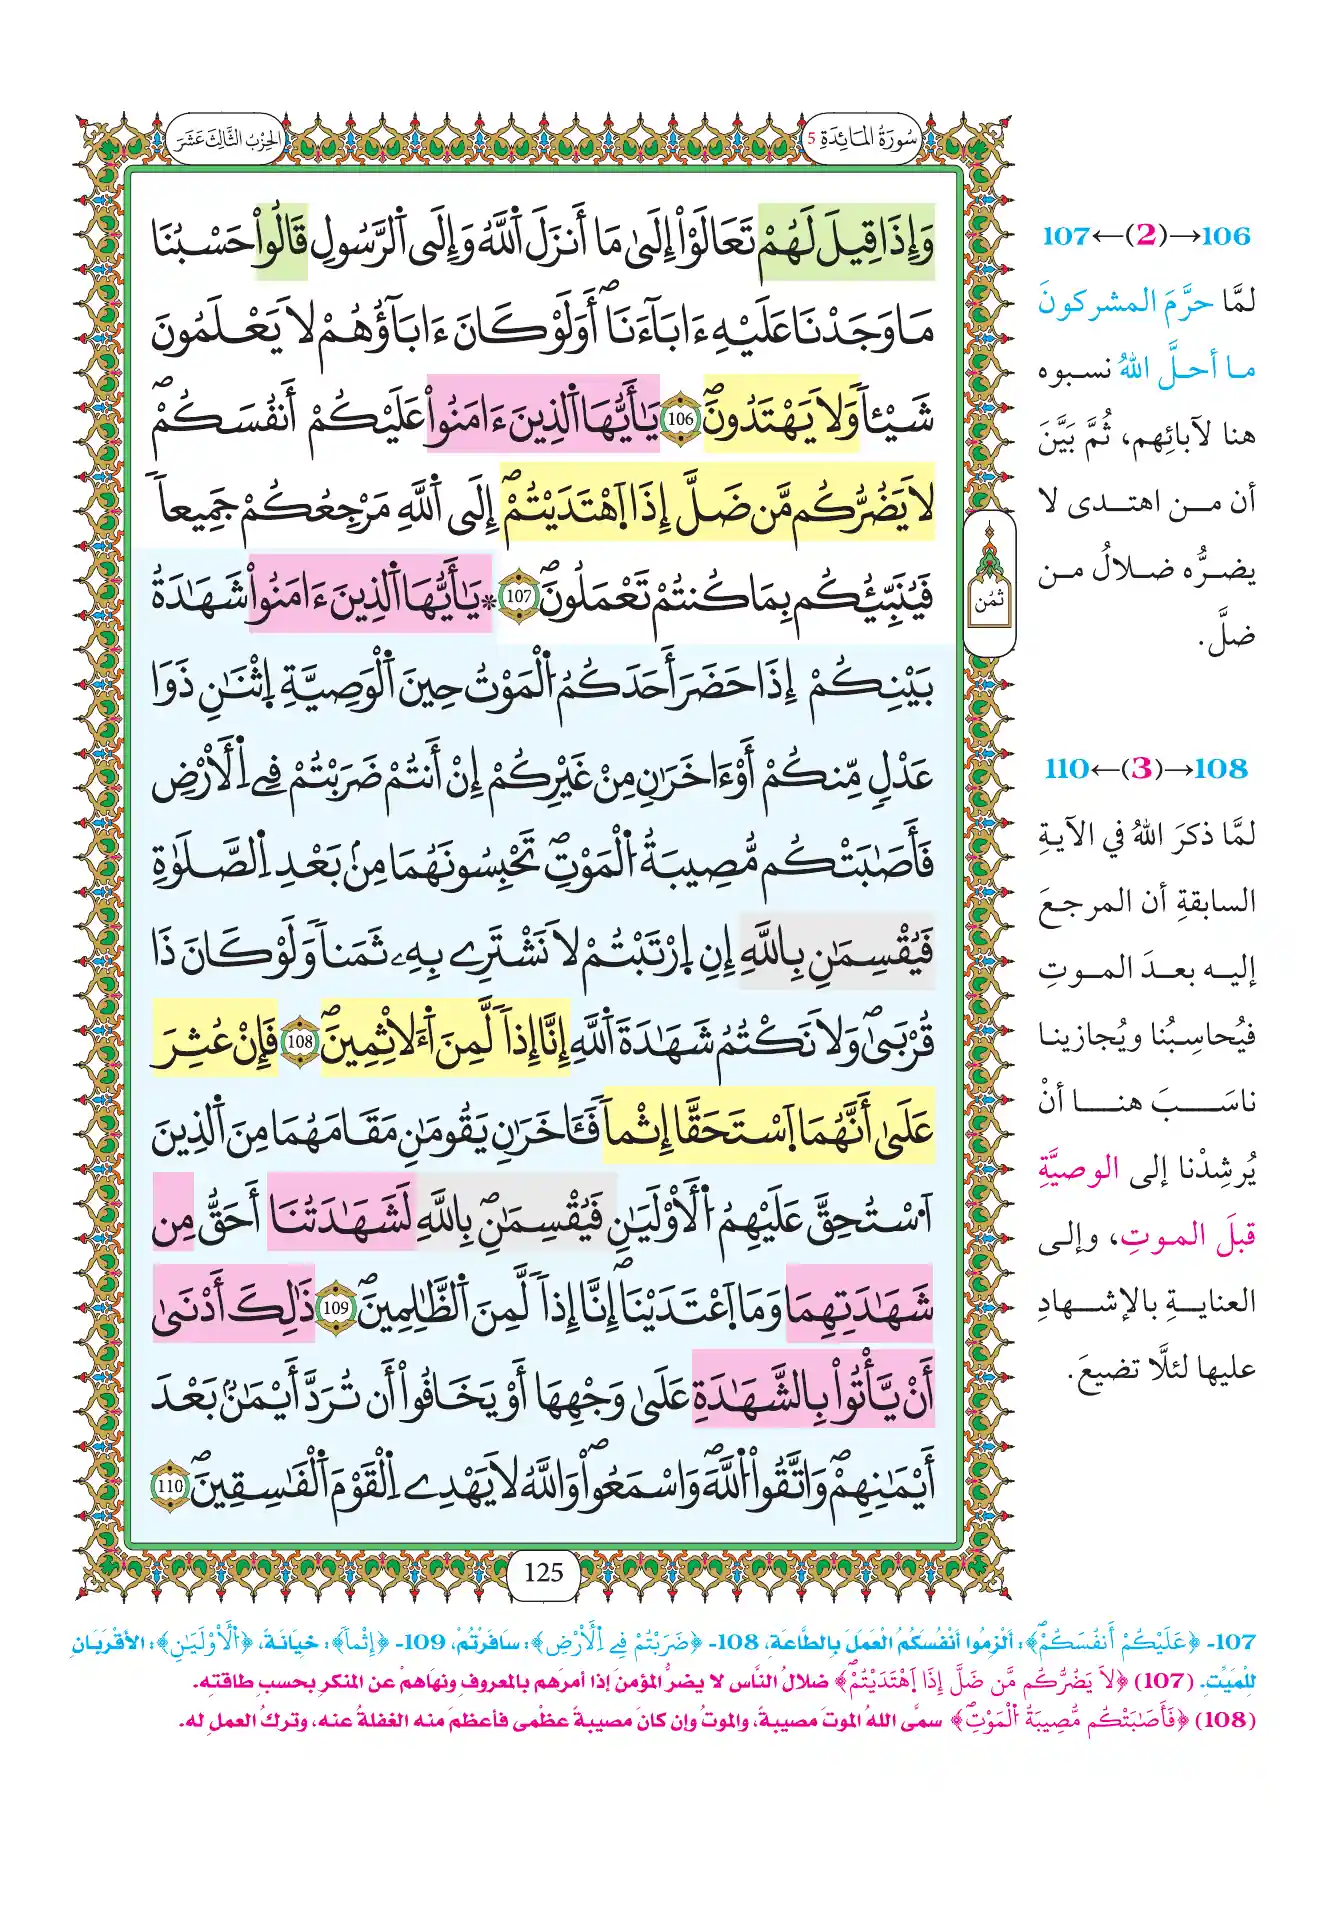 سُورَةُ المَائِدَةِ 5
الحِزْبُ الثَّالِثَ عَشَرَ
وَإِذَا قِيلَ لَهُمْ تَعَالَوْاْ إِلَىٰ مَا أَنزَلَ اَللَّهُ وَإِلَى اَلرَّسُولِ قَالُواْ حَسْبُنَا
مَا وَجَدْنَا عَلَيْهِ ءَابَآءَنَاۖ أَوَلَوْ كَانَ ءَابَآؤُهُمْ لَا يَعْلَمُونَ
شَيْـٔاً وَلَا يَهْتَدُونَۖ 106 يَٰٓأَيُّهَا اَلذِينَ ءَامَنُواْ عَلَيْكُمْ أَنفُسَكُمْۖ
لَا يَضُرُّكُم مَّن ضَلَّ إِذَا اَهْتَدَيْتُمْۖ إِلَى اَللَّهِ مَرْجِعُكُمْ جَمِيعاً
فَيُنَبِّئُكُم بِمَا كُنتُمْ تَعْمَلُونَۖ 107 * يَٰٓأَيُّهَا اَلذِينَ ءَامَنُواْ شَهَٰدَةُ
بَيْنِكُمْ إِذَا حَضَرَ أَحَدَكُمُ اُلْمَوْتُ حِينَ اَلْوَصِيَّةِ اِثْنَٰنِ ذَوَا
عَدْلٍ مِّنكُمْ أَوْ ءَاخَرَٰنِ مِنْ غَيْرِكُمْ إِنْ أَنتُمْ ضَرَبْتُمْ فِي اِلْأَرْضِ
فَأَصَٰبَتْكُم مُّصِيبَةُ اُلْمَوْتِۖ تَحْبِسُونَهُمَا مِنۢ بَعْدِ اِلصَّلَوٰةِ
فَيُقْسِمَٰنِ بِاللَّهِ إِنِ اِرْتَبْتُمْ لَا نَشْتَرِے بِهِۦ ثَمَناً وَلَوْ كَانَ ذَا
قُرْبَىٰۖ وَلَا نَكْتُمُ شَهَٰدَةَ اَللَّهِ إِنَّا إِذاً لَّمِنَ اَلْأٓثِمِينَۖ 108 فَإِنْ عُثِرَ
عَلَىٰ أَنَّهُمَا اَسْتَحَقَّا إِثْماً فَـَٔاخَرَٰنِ يَقُومَٰنِ مَقَامَهُمَا مِنَ اَلذِينَ
اَسْتُحِقَّ عَلَيْهِمُ اُلْأَوْلَيَٰنِ فَيُقْسِمَٰنِۖ بِاللَّهِ لَشَهَٰدَتُنَا أَحَقُّ مِن
شَهَٰدَتِهِمَا وَمَا اَعْتَدَيْنَاۖ إِنَّا إِذاً لَّمِنَ اَلظَّٰلِمِينَۖ 109 ذَٰلِكَ أَدْنَىٰ
أَنْ يَّأْتُواْ بِالشَّهَٰدَةِ عَلَىٰ وَجْهِهَا أَوْ يَخَافُواْ أَن تُرَدَّ أَيْمَٰنٌۢ بَعْدَ
أَيْمَٰنِهِمْۖ وَاتَّقُواْ اُللَّهَۖ وَاسْمَعُواْۖ وَاللَّهُ لَا يَهْدِے اِلْقَوْمَ اَلْفَٰسِقِينَۖ 110
ثُمُن
125
106→(2)←107
لمَّا حرَّمَ المشركونَ
ما أحلَّ اللهُ نسبوه
هنا لآبائِهم، ثُمَّ بَيَّنَ
أن من اهتدى لا
يضرُّه ضلالُ من
ضلَّ.
108→(3)←110
لمَّا ذكرَ اللهُ في الآيةِ
السابقةِ أن المرجعَ
إليه بعدَ الموتِ
فيُحاسِبُنا ويُجازينا
ناسَبَ هنا أنْ
يُرشِدْنا إلى الوصيَّةِ
قبلَ الموتِ، وإلى
العنايةِ بالإشهادِ
عليها لئلَّا تضيعَ.
107- ﴿عَلَيْكُمْ أَنفُسَكُمْۖ﴾: أَلْزِمُوا أَنْفُسَكُمُ العَمَلَ بِالطَّاعَةِ، 108- ﴿ضَرَبْتُمْ فِي اِلْأَرْضِ﴾: سَافَرْتُمْ، 109- ﴿إِثْماً﴾: خِيَانَةً، ﴿اَلْأَوْلَيَٰنِ﴾: الأَقْرَبَانِ
لِلْمَيِّتِ. (107) ﴿لَا يَضُرُّكُم مَّن ضَلَّ إِذَا اَهْتَدَيْتُمْۖ﴾ ضلالُ النَّاس لا يضرُّ المؤمنَ إذا أمرَهم بالمعروفِ ونهَاهمْ عن المنكرِ بحسبِ طاقتَهِ.
(108) ﴿فَأَصَٰبَتْكُم مُّصِيبَةُ اُلْمَوْتِۖ﴾ سمَّى اللهُ الموتَ مصيبةً، والموتُ وإن كانَ مصيبةً عظْمى فأعظمَ منه الغفلةُ عنه، وتركُ العملِ له.